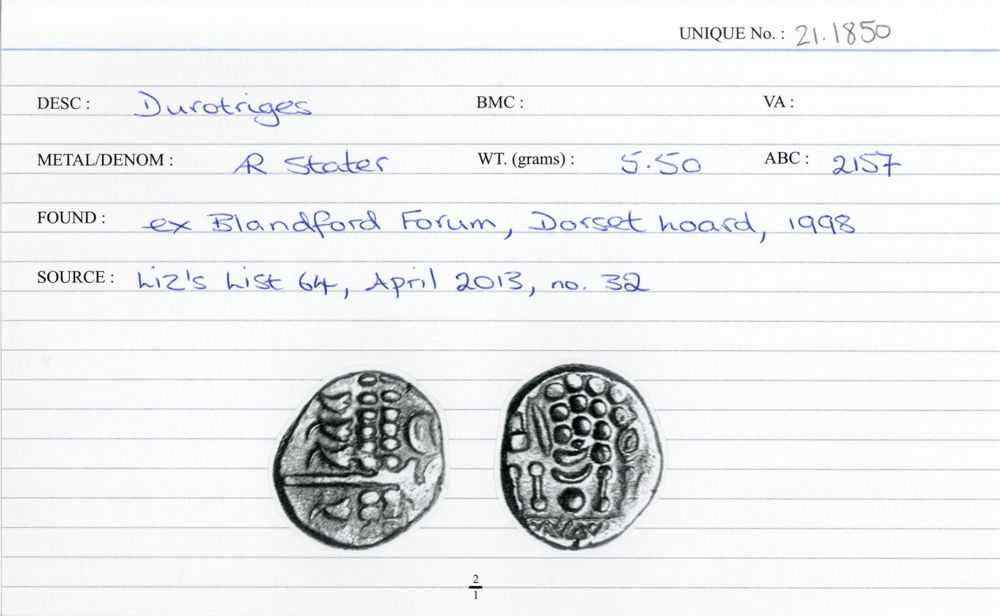 UNIQUE No. : 21.1850
DESC : Durotriges BMC : VA :
METAL/DENOM : AR Stater WT. (grams) : 5.50 ABC : 2157
FOUND : ex Blandford Forum, Dorset hoard, 1998
SOURCE : Liz's List 64, April 2013, no. 32
2
1